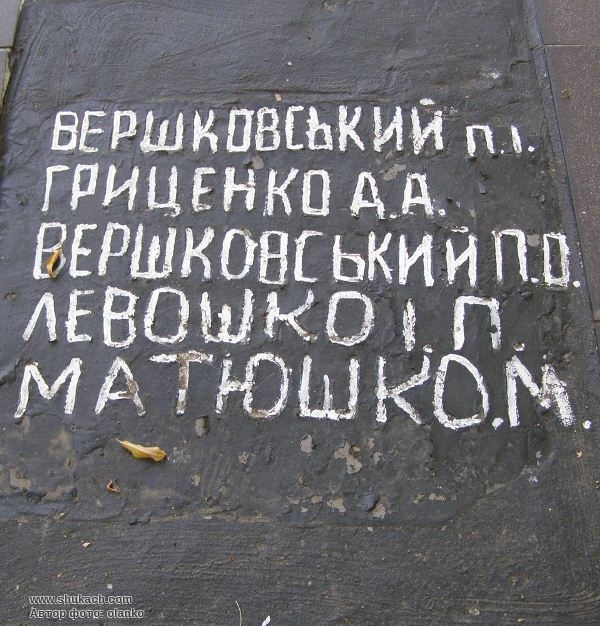 ВЕРШКОВСЬКИЙ П.І.
ГРИЦЕНКО А.А.
ВЕРШКОВСЬКИЙ П.О.
ЛЕВОШКО І.П.
МАТЮШКО.М.
www.shukach.com
Автор фото: olanko